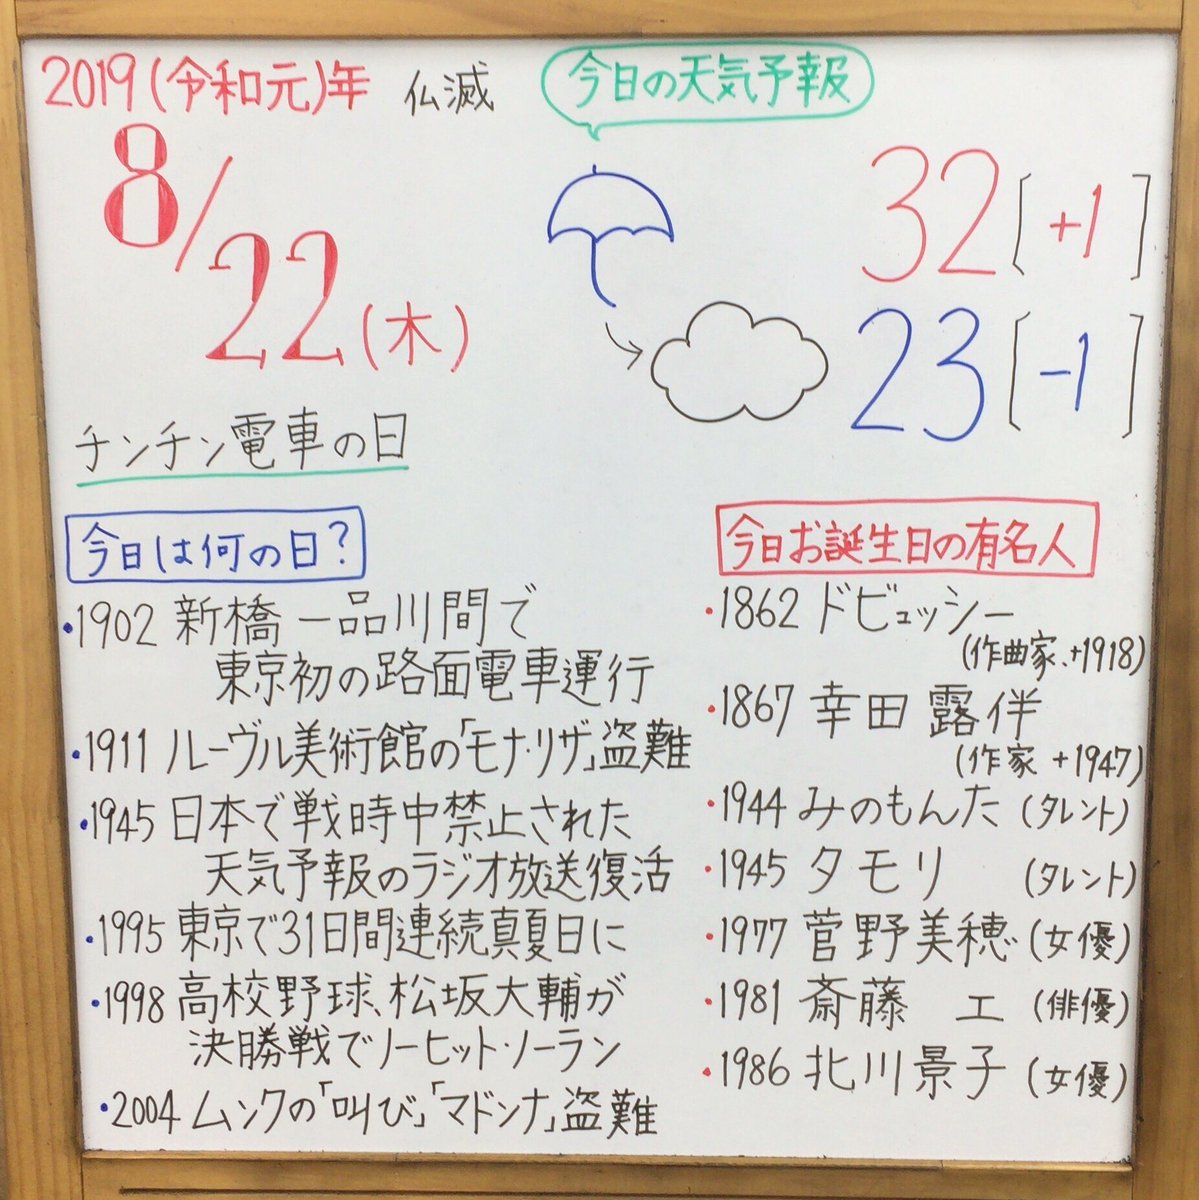 2019(令和元)年 仏滅
8/22(木)
今日の天気予報
32[+1]
23[-1]
チンチン電車の日
今日は何の日?
・1902 新橋ー品川間で
東京初の路面電車運行
・1911 ルーヴル美術館の「モナ・リザ」盗難
・1945 日本で戦時中禁止された
天気予報のラジオ放送復活
・1995 東京で31日間連続真夏日に
・1998 高校野球、松坂大輔が
決勝戦でノーヒット・ノーラン
・2004 ムンクの「叫び」「マドンナ」盗難
今日お誕生日の有名人
・1862 ドビュッシー
(作曲家、+1918)
・1867 幸田 露伴
(作家 +1947)
・1944 みのもんた (タレント)
・1945 タモリ (タレント)
・1977 菅野美穂 (女優)
・1981 斎藤 工 (俳優)
・1986 北川景子 (女優)